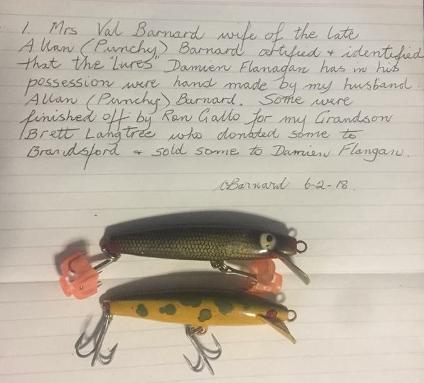 1, Mrs Val Barnard wife of the late
Allan (Punchy) Barnard certified & identified
that the "Lures" Damien Flanagan has in his
possession were hand made by my husband
Allan (Punchy) Barnard. Some were
finished off by Ron Gallo for my Grandson
Brett Langtree who donated some to
Brandsford & sold some to Damien Flangan.
Barnard 6-2-18.